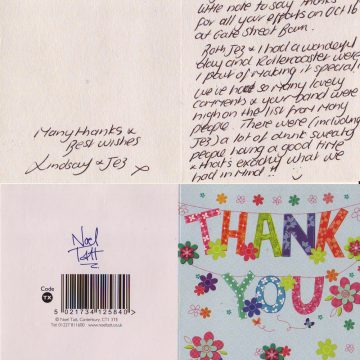 little note to say thanks
for all your efforts on Oct 16
at Gate Street Barn.
Both Jez & I had a wonderful
day and Rollercoaster were
a part of making it special
we've had so many lovely
comments & your band were
high on the list from many
people. There were (including
Jez) a lot of drunk sweaty
people having a good time
& that's exactly what we
had in mind!!
Many thanks &
Best wishes
Lindsay & Jez x
Noel
Tatt
Code
TX
5 021734 125840 >
© Noel Tatt, Canterbury, CT1 3TE
Tel: 01227 811600 www.noeltatt.co.uk
THANK
YOU